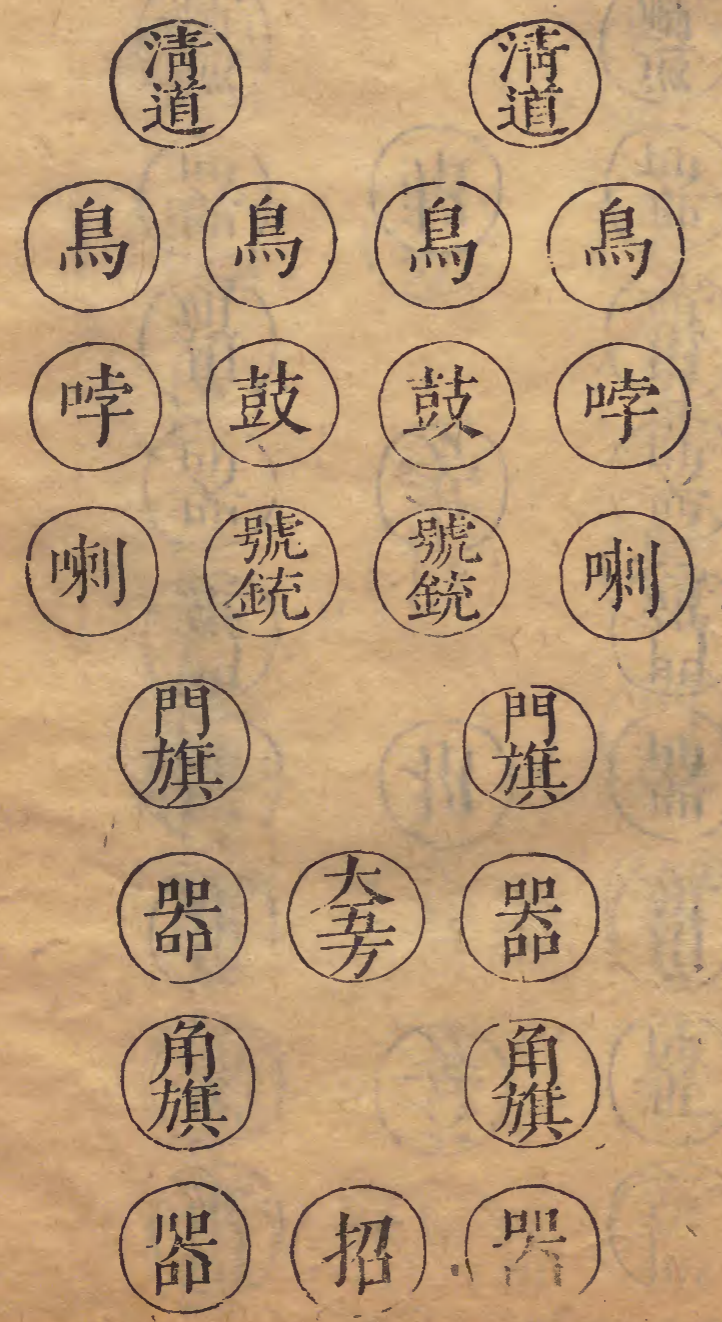 清道 清道
鳥 鳥 鳥 鳥
哱 鼓 鼓 哱
喇 號銃 號銃 喇
門旗 門旗
器 大五方 器
角旗 角旗
器 招 器